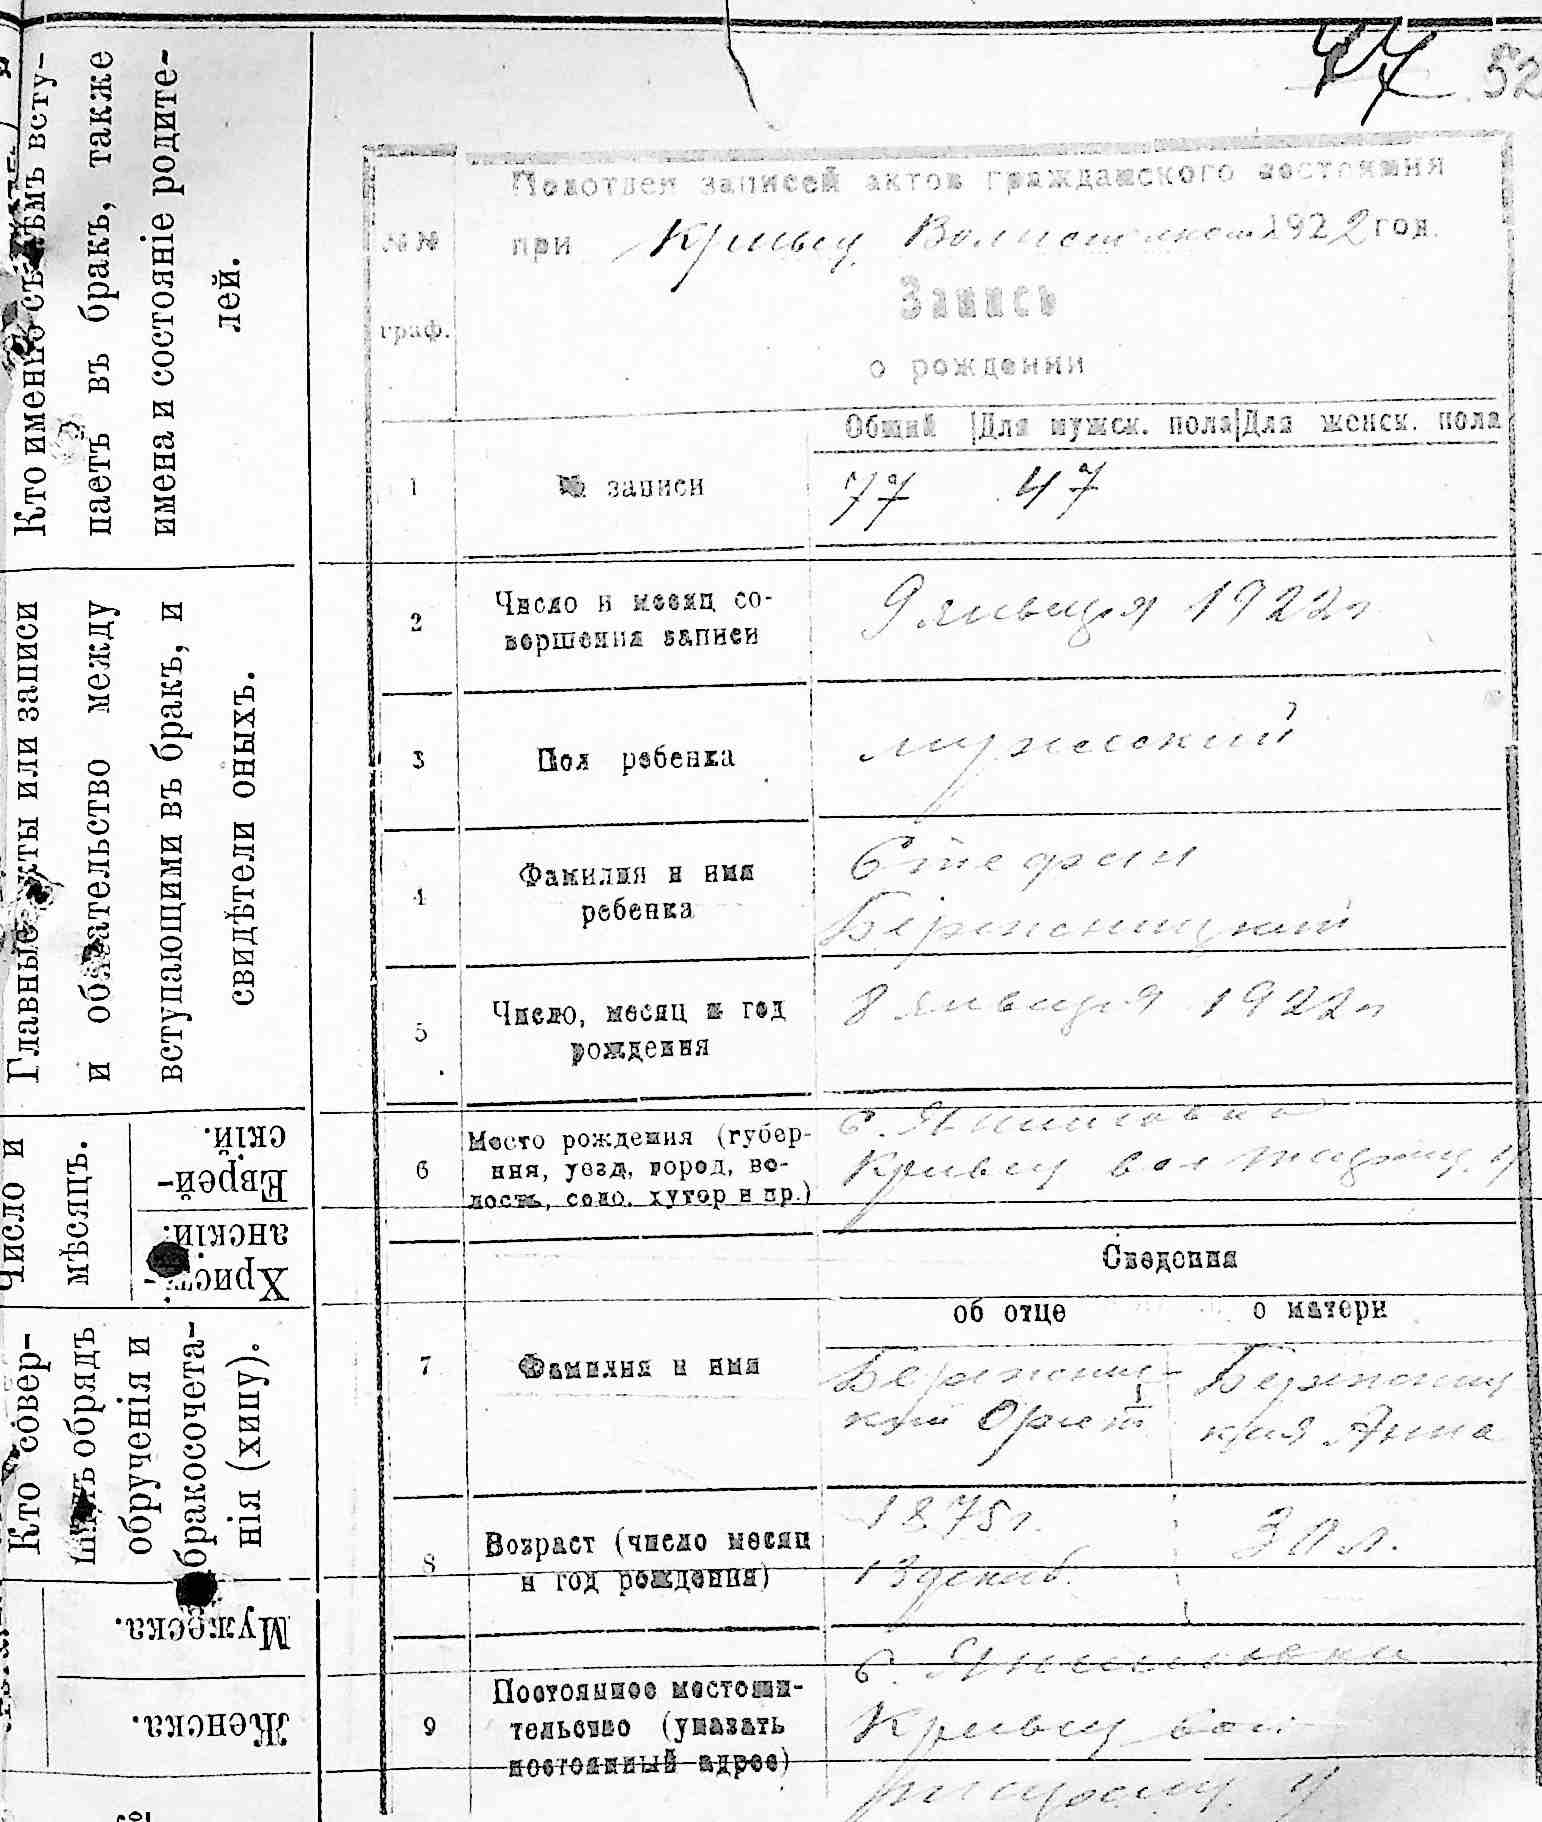 77 52
Кто именно съ кѣмъ всту-
паетъ въ бракъ, также
имена и состояніе родите-
лей.
Главные акты или записи
и обязательство между
вступающими въ бракъ, и
свидѣтели оныхъ.
Число и
мѣсяцъ.
Еврей-
скій.
Христі-
анскій.
Кто совер-
шилъ обрядъ
обрученія и
бракосочета-
нія (хипу).
Мужеска.
Женска.
№№
граф.
Подотдел записей актов гражданского состояния
при 1922 год.
Запись
о рождении
Общий Для мужск. пола Для женск. пола
1 № записи 77 47
2 Число и месяц со-
вершения записи
9 января 1922 г
3 Пол ребенка мужеский
4 Фамилия и имя
ребенка
Стефан
5 Число, месяц и год
рождения
8 января 1922 г
6 Место рождения (губер-
ния, уезд, город, во-
лость, село, хутор и пр.)
с.
вол
Сведения
об отце о матери
7 Фамилия и имя
Анна
8 Возраст (число месяц
и год рождения)
1875 г.
13 декаб.
30 л.
9 Постоянное местожи-
тельство (указать
постоянный адрес)
с.
вол